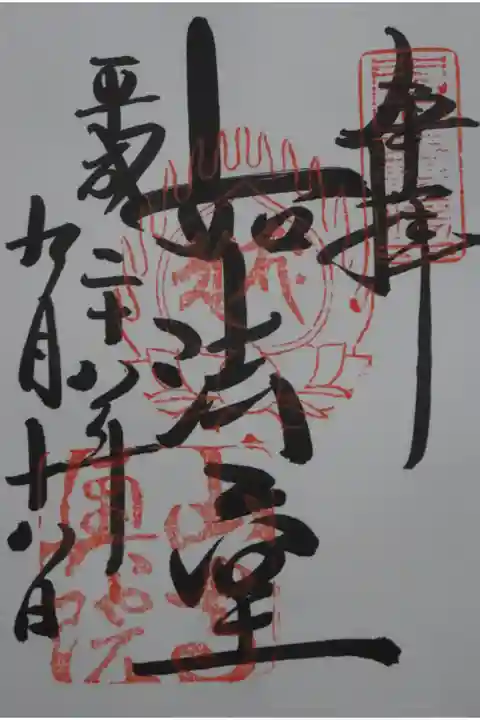 奉拝
如法堂
平成二十八年
九月十八日